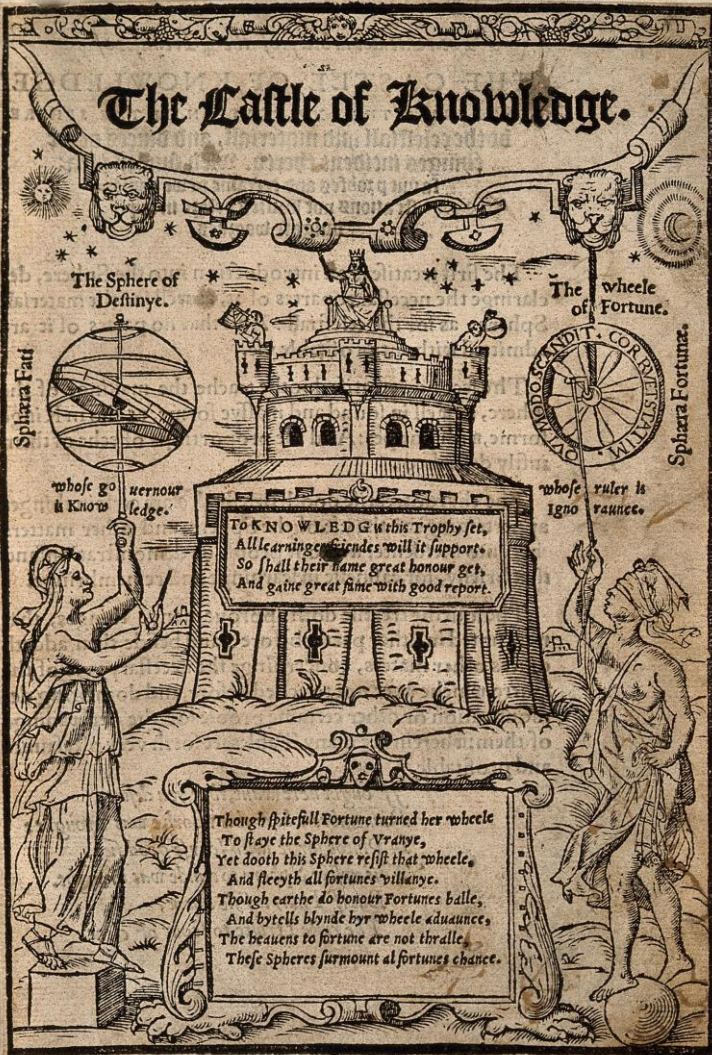 The Caſtle of Knowledge.
The Sphere of
Deſtinye.
The wheele
of Fortune.
Sphæra Fati
QVI MODO SCANDIT CORRVET STATIM
Sphæra Fortunæ.
whoſe gouernour
is Knowledge.
whoſe ruler is
Ignoraunce.
To KNOWLEDG is this Trophy ſet,
All learninges friendes will it ſupport.
So ſhall their name great honour get,
And gaine great fame with good report.
Though ſpitefull Fortune turned her wheele
To ſtaye the Sphere of Vranye,
Yet dooth this Sphere reſiſt that wheele,
And fleeyth all fortunes villanye.
Though earthe do honour Fortunes balle,
And bytells blynde hyr wheele aduaunce,
The heauens to fortune are not thralle,
Theſe Spheres ſurmount al fortunes chance.